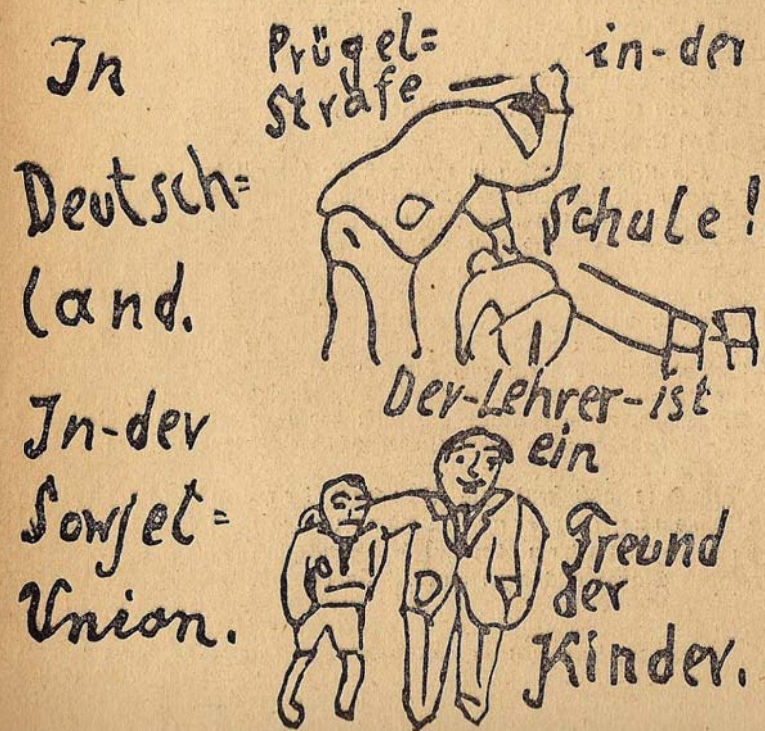 In
Deutsch=
land.
Prügel=
Strafe
in-der
Schule!
In-der
Sowjet=
Union.
Der-Lehrer-ist
ein
Freund
der
Kinder.